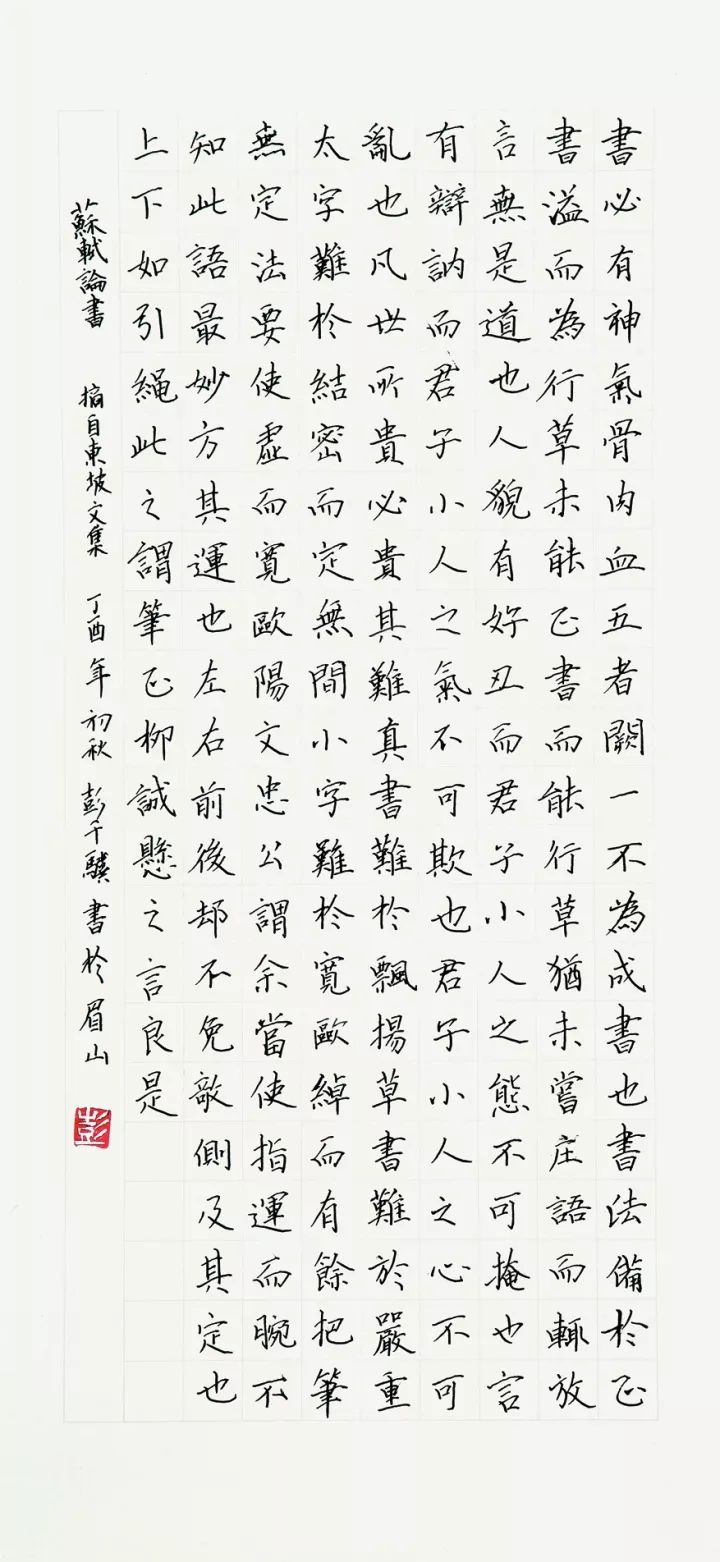 書必有神氣骨肉血五者闕一不為成書也書法備於正
書溢而為行草未能正書而能行草猶未嘗庄語而輒放
言無是道也人貌有好丑而君子小人之態不可掩也言
有辯訥而君子小人之氣不可欺也君子小人之心不可
亂也凡世所貴必貴其難真書難於飄揚草書難於嚴重
太字難於結密而定無間小字難於寬歐綽而有餘把筆
無定法要使虛而寬歐陽文忠公謂余當使指運而腕不
知此語最妙方其運也左右前後却不免敧側及其定也
上下如引繩此之謂筆正柳誠懸之言良是
蘇軾論書 摘自東坡文集 丁酉年初秋 彭千驥書於眉山
彭